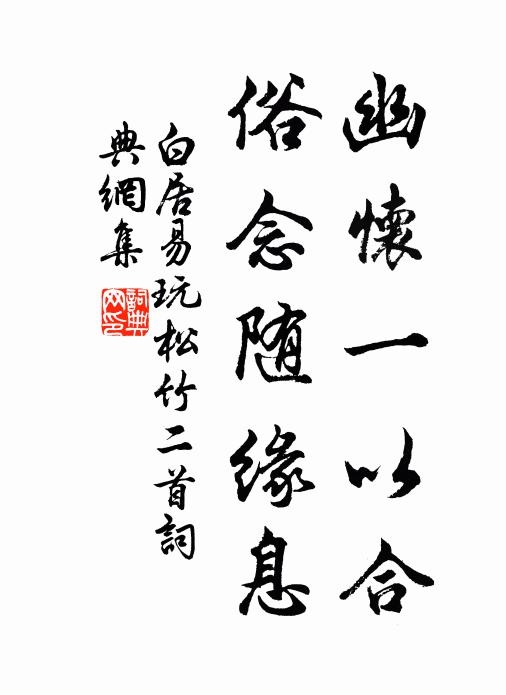 幽懷一以合
俗念随緣息
白居易玩松竹二首詞
典網集
詞典網印